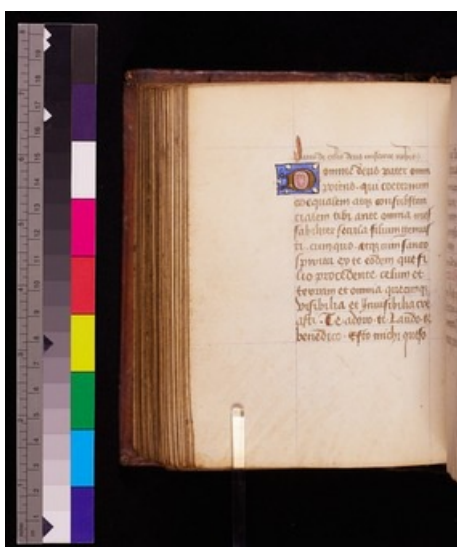 Pater de celis deus miserere nobis
Domine deus pater omni
potens qui coeternum
coequalem atqz consubstan
tialem tibi ante omnia inef
fabiliter secula filium genuis
ti cum quo atqz cum sancto
spiritu ex te eodem que fi
lio procedente celum et
terram et omnia quecunqz
visibilia et Inuisibilia cre
asti. Te adoro te Laudo te
benedico. Esto michi queso